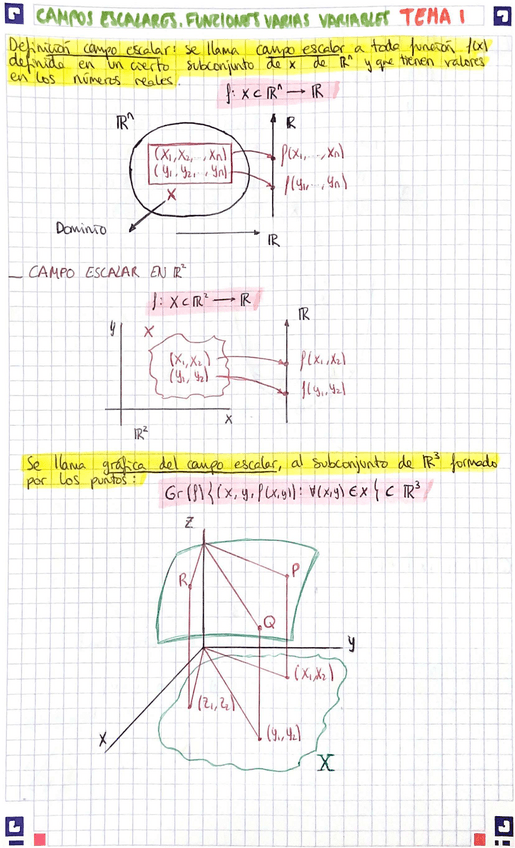 CAMPOS ESCALARES. FUNCIONES VARIAS VARIABLES TEMA 1
Definición campo escalar: se llama campo escalar a toda función f(x)
definida en un cierto subconjunto de x de ℝⁿ y que tienen valores
en los números reales.
f: X ⊂ ℝⁿ → ℝ
ℝⁿ
ℝ
(x₁, x₂, .., xₙ)
f(x₁, ..., xₙ)
(y₁, y₂, .., yₙ)
f(y₁, ..., yₙ)
X
Dominio
ℝ
— CAMPO ESCALAR EN ℝ²
f: X ⊂ ℝ² → ℝ
ℝ
y
X
(x₁, x₂)
f(x₁, x₂)
(y₁, y₂)
f(y₁, y₂)
ℝ²
x
Se llama gráfica del campo escalar, al subconjunto de ℝ³ formado
por los puntos:
Gr(f) {(x, y, f(x,y)): ∀(x,y) ∈ x { ⊂ ℝ³
Z
R
P
Q
y
(x₁, x₂)
(z₁, z₂)
(y₁, y₂)
X
X